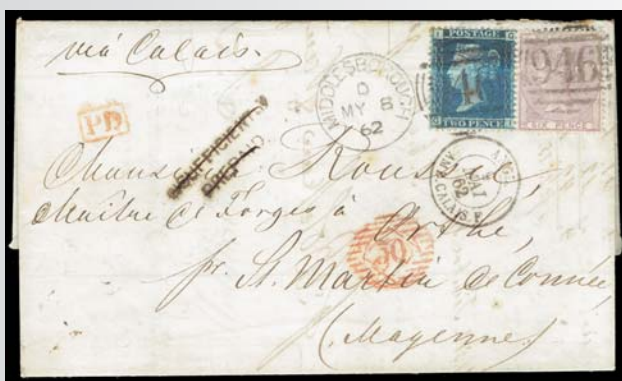 via Calais.
POSTAGE
TWO PENCE
SIX PENCE
946
MIDDLESBOROUGH
D
MY 8
62
PD
INSUFFICIENTLY
PREPAID
ANGL.
MAI
62
AMB. CALAIS F
Monsieur Rousselé,
Maître de Forges à
Orthe,
pr. St. Martin de Connée
(Mayenne)